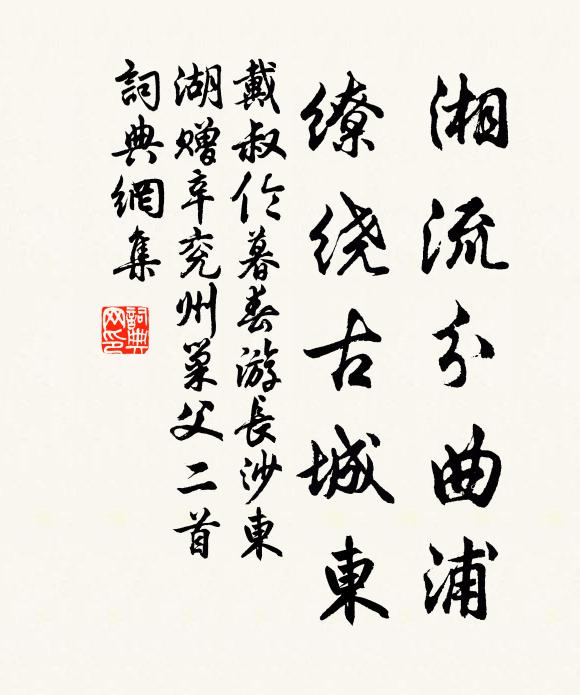 湘流分曲浦
缭绕古城東
戴叔伦暮春游長沙東
湖赠辛兖州巢父二首
詞典網集
詞典网印